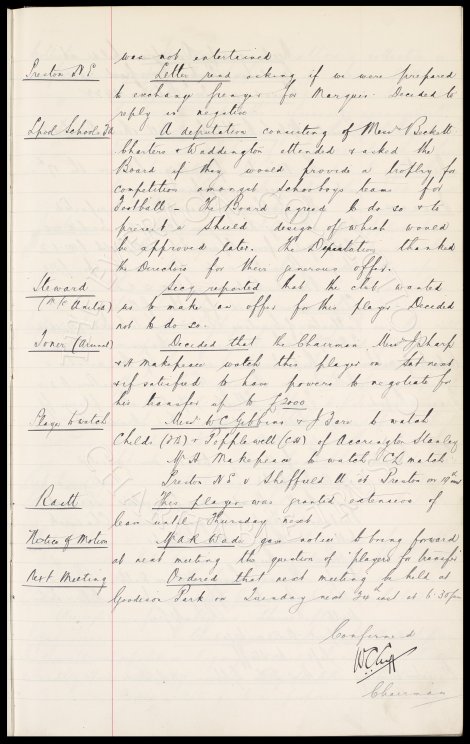 was not entertained
Preston N.E. Letter read asking if we were prepared
to exchange Freeze for Marques. Decided to
reply in negative
Lpool Schools FA A deputation consisting of Messrs Beckett
Charters & Waddington attended & asked the
Board if they would provide a trophy for
competition amongst Schoolboys teams for
Football - The Board agreed to do so & to
present a Shield design of which would
be approved later. The Deputation thanked
the Directors for their generous offer.
Steward Secy reported that the club wanted
(M/c United) us to make an offer for this player. Decided
not to do so.
Toner (Arsenal) Decided that the Chairman Messrs J Sharp
& H Makepeace watch this player on Sat next
& if satisfied to have powers to negotiate for
his transfer up to £2000
Player to watch Messrs W C Gibbins & J to watch
Childs (F.B) & Popplewell (C.H) of Accrington Stanley
Mr H Makepeace to watch Ch match
Preston N.E v Sheffield U at Preston on inst
Raitt This player was granted extension of
leave until Thursday next
Notice of Motion Mr A R Wade gave notice to bring forward
at next meeting the question of "players for transfer"
Next Meeting Ordered that next meeting be held at
Goodison Park on Tuesday next 24th inst at 6.30pm
Confirmed
W.C. Cuff
Chairman